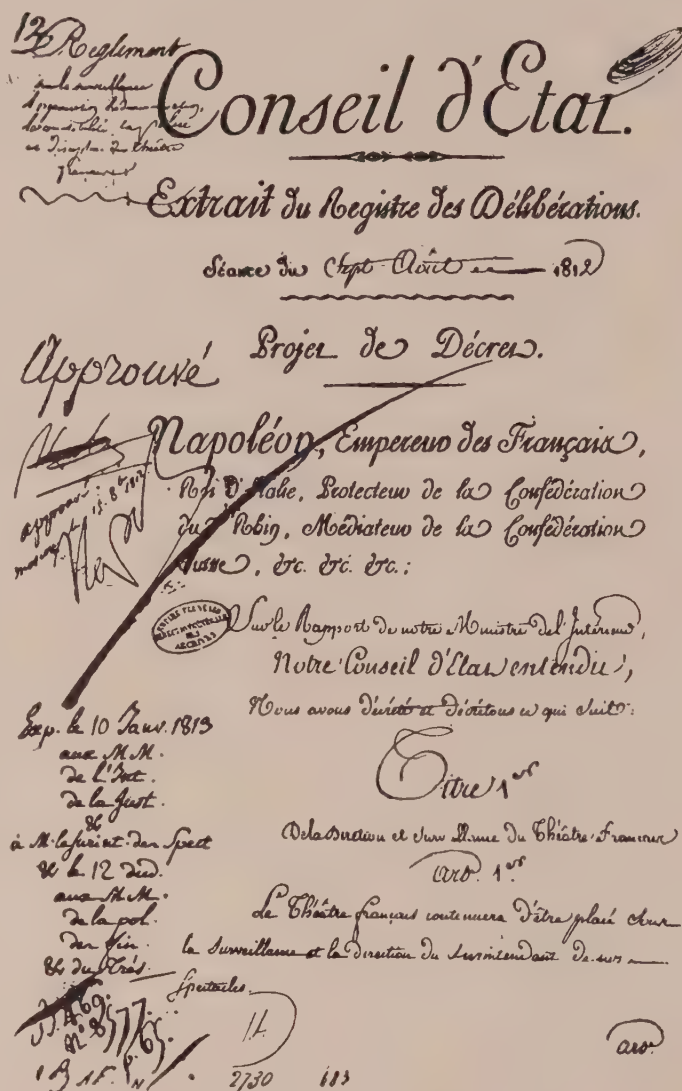 12
Reglement
sur la surveillance
la police
Théâtre
français
Conseil d'Etat.
Extrait du Registre des Délibérations.
Séance du Sept Août 1812
Projet de Décret.
Approuvé
Napoléon, Empereur des Français,
Roi d'Italie, Protecteur de la Confédération
du Rhin, Médiateur de la Confédération
Suisse, &c. &c. &c.:
approuvé
Sur le Rapport de notre Ministre de l'Intérieur,
ARCHIVES
Notre Conseil d'Etat entendu,
Nous avons décrété et décrétons ce qui suit:
Exp. le 10 Janv. 1813
aux MM.
de l'Int.
de la Just.
&
à M. le surint. des Spect
& le 12 dud.
aux MM.
de la pol.
des fin.
& du Trés.
Titre 1er
De la Direction et Surveillance du Théâtre Français
art. 1er.
Le Théâtre français continuera d'être placé sous
la surveillance et la direction du surintendant de nos
Spectacles.
art.
2730